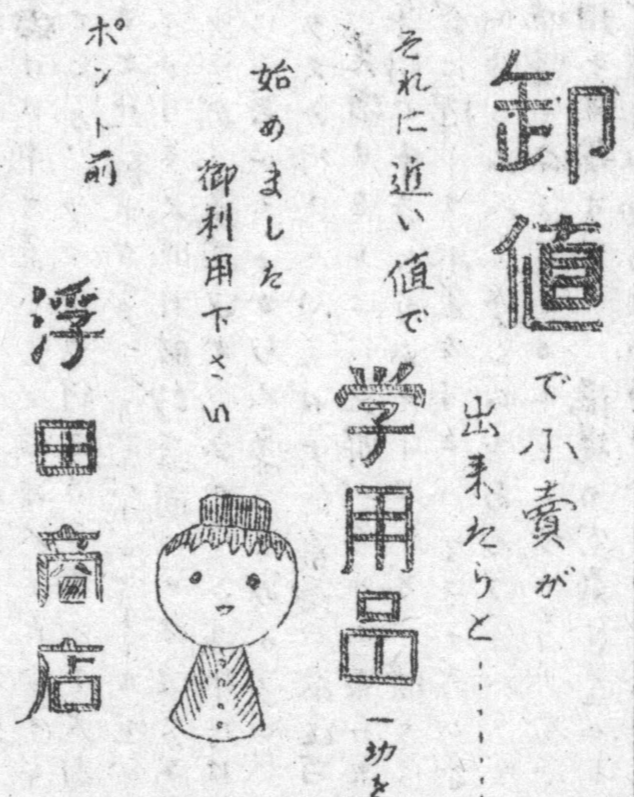 卸値で小賣が
出来たらと‥‥‥
それに近い値で
学用品一切を
始めました
御利用下さい
ポント前
浮田商店